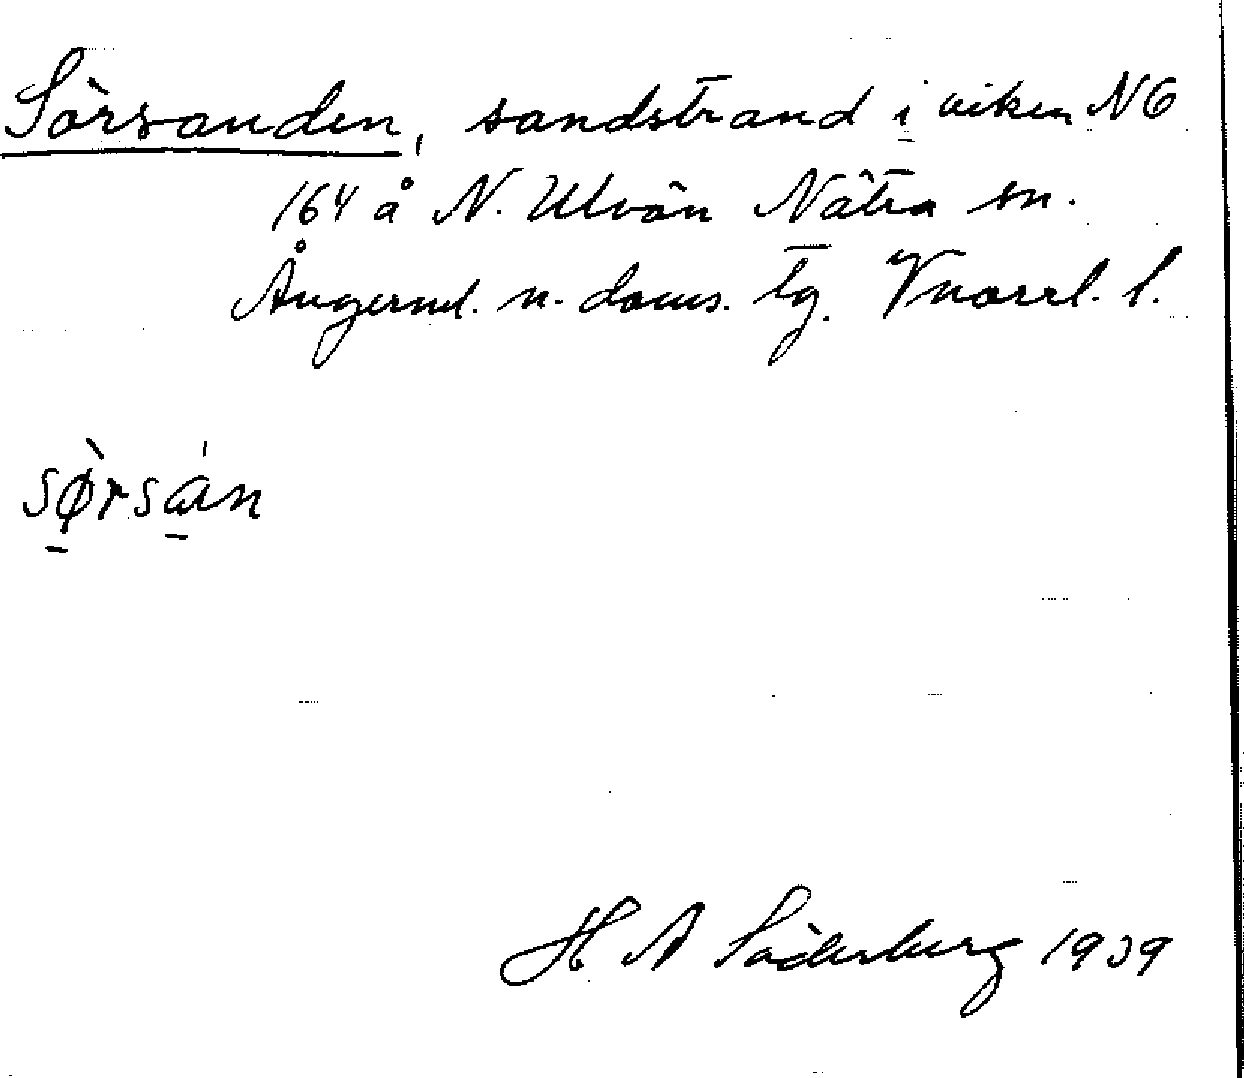 Sörsanden, sandstrand i viken NO
164 å N. Ulvön Nätra sn.
Ångerml. n. doms. tg. Vnorrl. l.
sørsan
H A Söderberg 1939